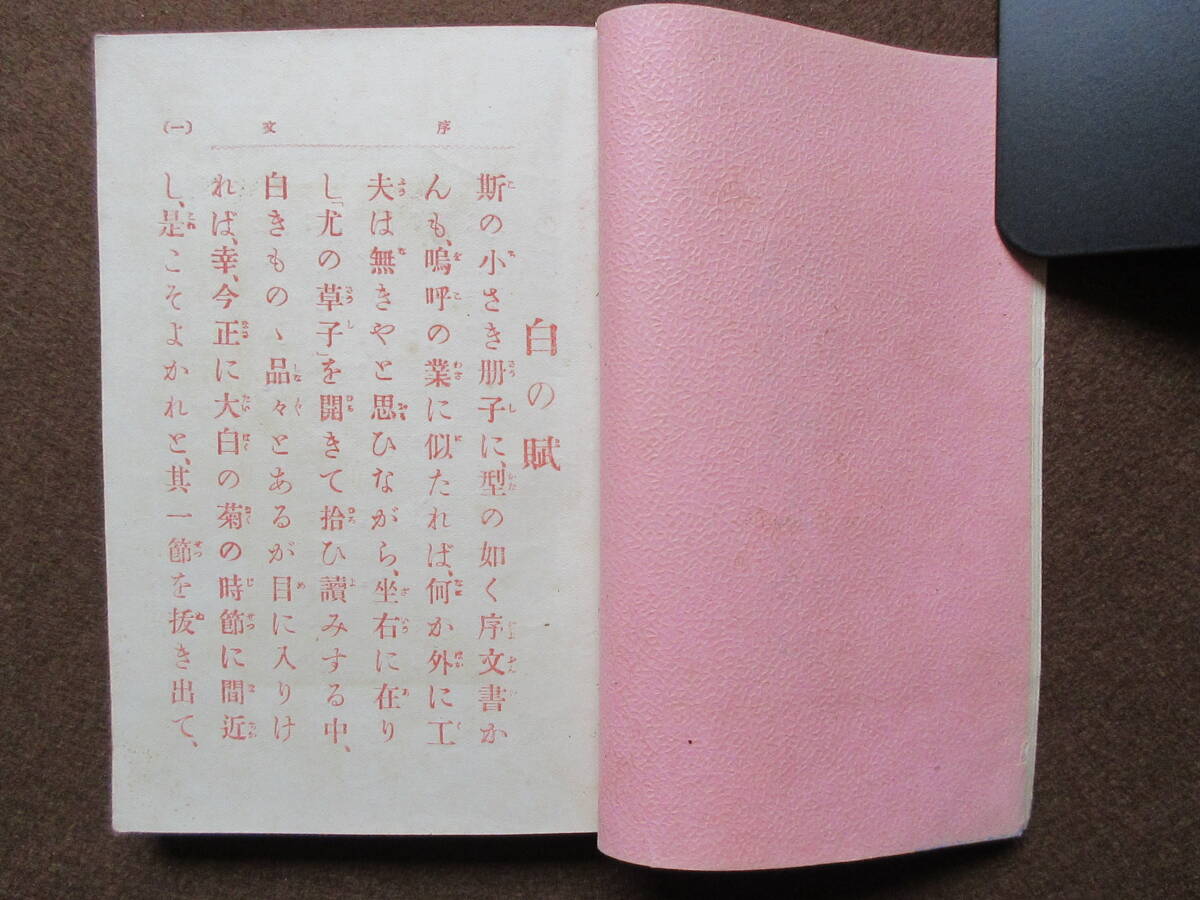 序文 (一)
白の賦
斯の小さき册子に、型の如く序文書か
んも、嗚呼の業に似たれば、何か外に工
夫は無きやと思ひながら、坐右に在り
し「尤の草子」を開きて拾ひ讀みする中、
白きものゝ品々とあるが目に入りけ
れば、幸、今正に大白の菊の時節に間近
し、是こそよかれと、其一節を拔き出て、